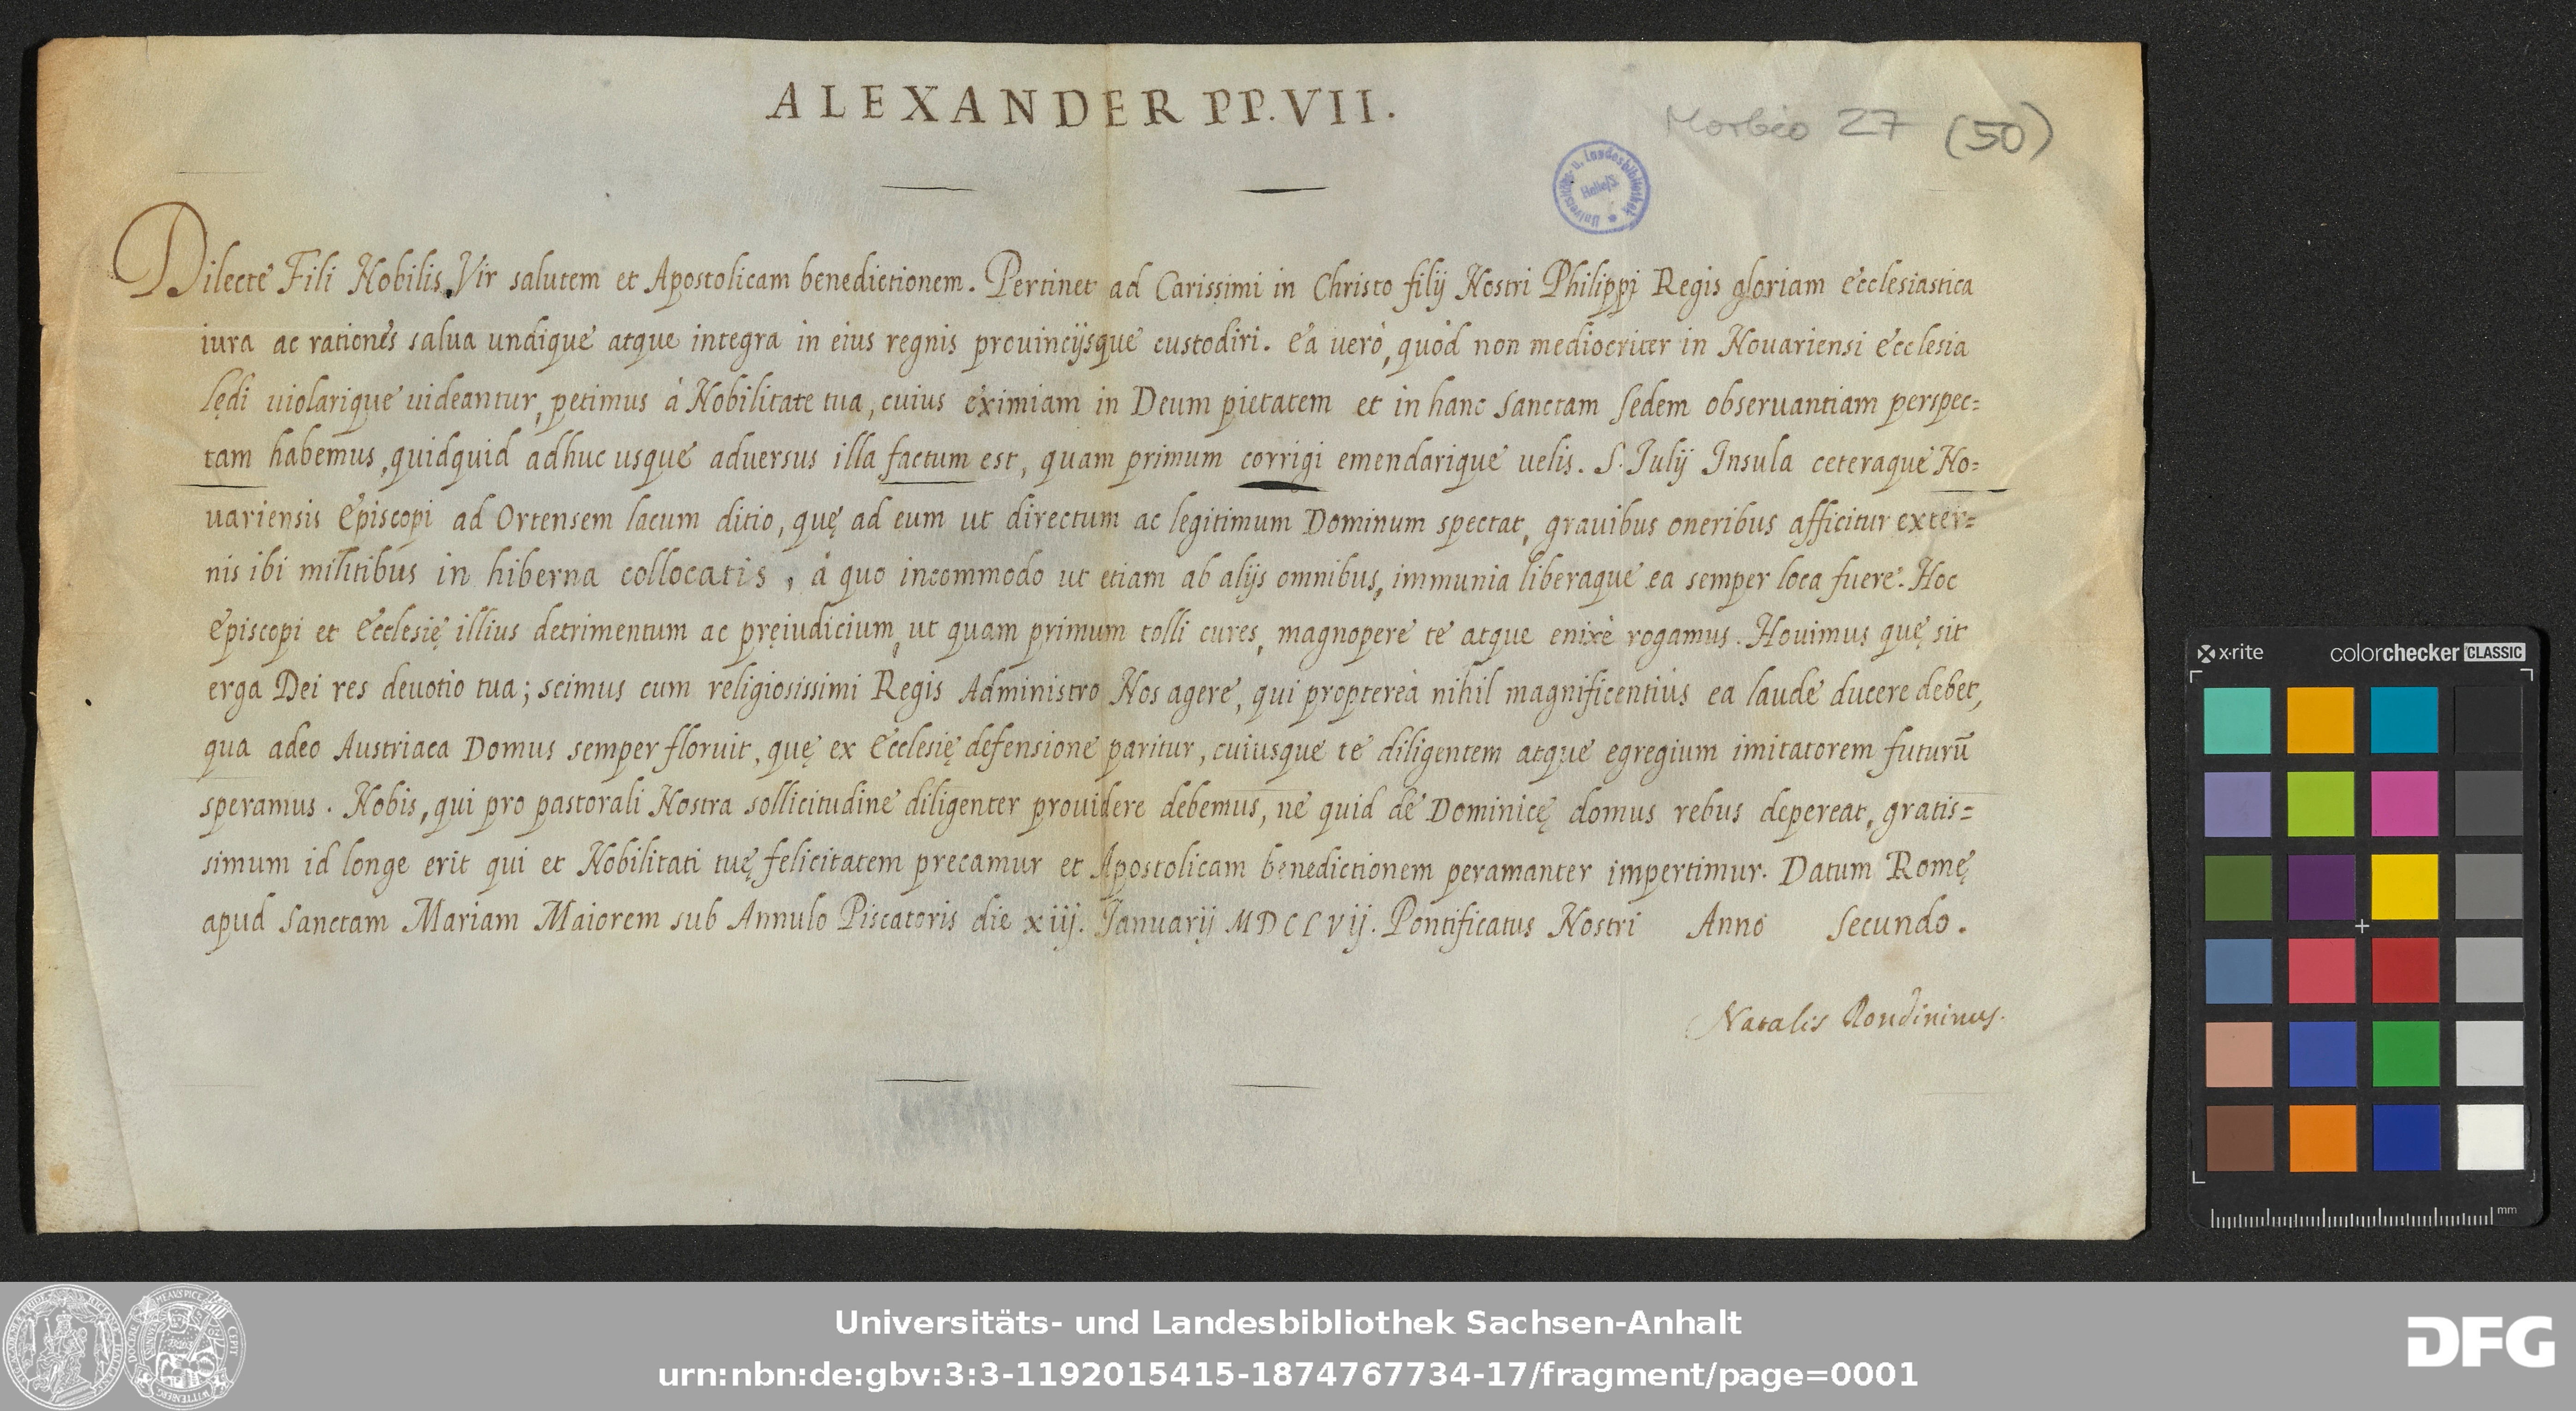 ALEXANDER PP. VII.
Morbio 27 (50)
Universitäts- u. Landesbibliothek
Halle/S.
Dilecte Fili Nobilis Vir salutem et Apostolicam benedictionem. Pertinet ad Carissimi in Christo filij Nostri Philippi Regis gloriam Ecclesiastica
iura ac rationes salua undique atque integra in eius regnis prouincijsque custodiri. Ea uerò, quòd non mediocriter in Nouariensi Ecclesia
lędi uiolarique uideantur, petimus à Nobilitate tua, cuius eximiam in Deum pietatem et in hanc Sanctam Sedem obseruantiam perspec=
tam habemus, quidquid adhuc usque aduersus illa factum est, quam primum corrigi emendarique uelis. S. Iulij Insula ceteraque No=
uariensis Episcopi ad Ortensem lacum ditio, quę ad eum ut directum ac legitimum Dominum spectat, grauibus oneribus afficitur exter=
nis ibi militibus in hiberna collocatis, à quo incommodo ut etiam ab alijs omnibus, immunia liberaque ea semper loca fuere. Hoc
Episcopi et Ecclesię illius detrimentum ac pręiudicium, ut quam primum tolli cures, magnopere te atque enixè rogamus. Nouimus quę sit
erga Dei res deuotio tua; scimus cum religiosissimi Regis Administro Nos agere, qui propterea nihil magnificentius ea laude ducere debet,
qua adeo Austriaca Domus semper floruit, quę ex Ecclesię defensione paritur, cuiusque te diligentem atque egregium imitatorem futurū
speramus. Nobis, qui pro pastorali Nostra sollicitudine diligenter prouidere debemus, ne quid de Dominicę domus rebus depereat, gratis=
simum id longe erit qui et Nobilitati tuę felicitatem precamur et Apostolicam benedictionem peramanter impertimur. Datum Romę
apud Sanctam Mariam Maiorem sub Annulo Piscatoris die xiij. Ianuarij MDCLVij. Pontificatus Nostri Anno Secundo.
Natalis Rondininus.
x·rite colorchecker CLASSIC
mm
Universitäts- und Landesbibliothek Sachsen-Anhalt
urn:nbn:de:gbv:3:3-1192015415-1874767734-17/fragment/page=0001
DFG